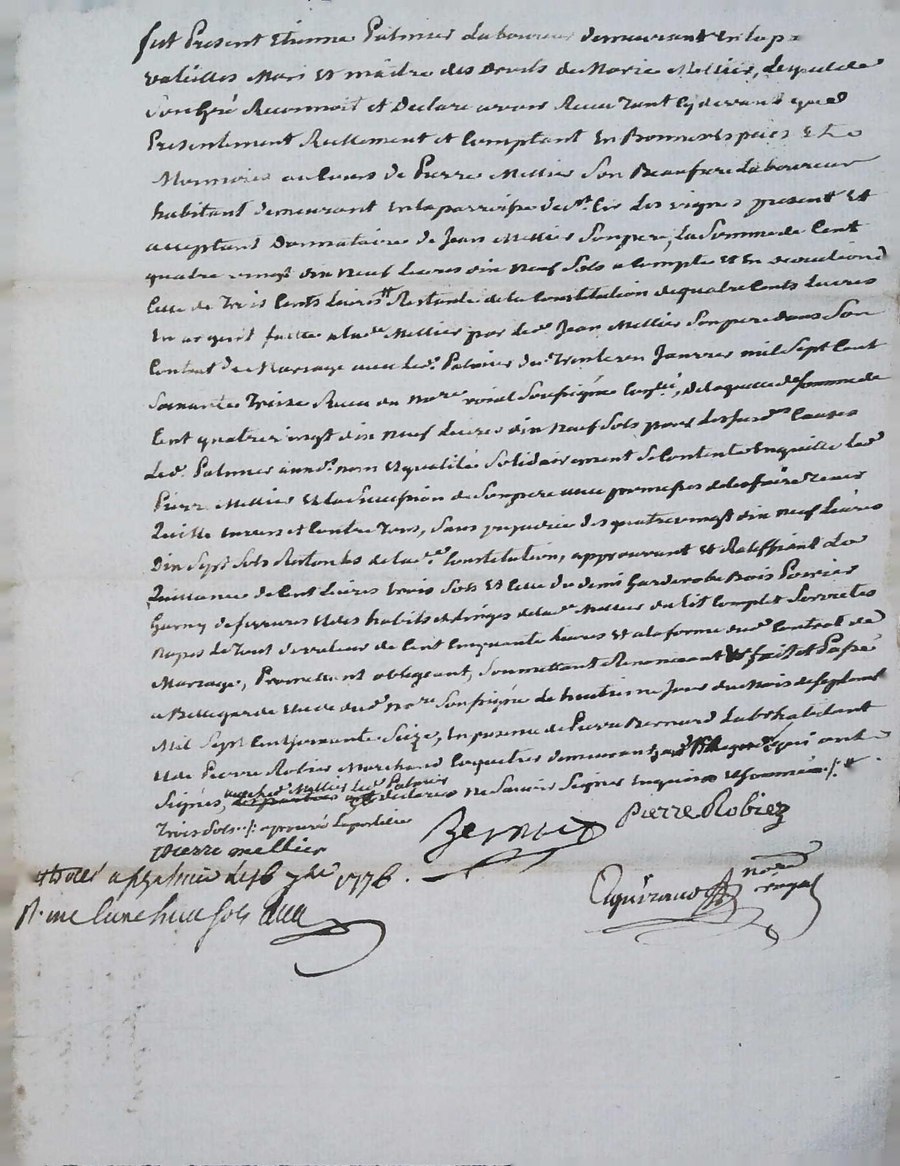 fut Present Etienne Palmier Laboureur demeurant en la p
valeilles Mari et maitre des droits de Marie Mellier, Lequel de
Son Gré Reconnoit et Declare avoir Receu tant cy devant que
Presentement Reellement et Comptant en Bonnes Espeies et
Monnoies au Cours de Pierre Mellier Son Beaufrere Laboureur
habitant demeurant en la parroisse de St. Cir Les vignes present et
acceptant Donnataire de Jean Mellier Son pere, La Somme de Cent
quatre vingt dix Neuf Livres dix Neuf Sols a Compte et En deduction
Celle de Trois Cents Livres Restante de la Constitution de quatre Cents Livres
En argent faitte a lad. Mellier par Led. Jean Mellier Son pere dans Son
Contrat de Mariage avec Led. Palmier du Trente en Janvier mil Sept Cent
Soixante Treize Receu du Nore. roial Soussigné, de laquelle de Somme de
Cent quatre vingt dix neuf Livres dix Neuf Sols pour Les susd. Causes
Led. Palmier aux d. nom et qualité Solidairement Se Contente En quitte Led.
Pierre Mellier et La Succession de Son pere avec promesses de Les faire Tenir
Quitte envers et Contre Tous, Sans prejudice des quatre vingt dix neuf Livres
Dix Sept Sols Restants de lad. Constitution, approuvant et Ratiffient La
Quittance de Cent Livres trois Sols et Celle du demi Garderobe Bois Poirier
Garny de ferrures et des habits et Linges de lad. Mellier du lit Complet Serviettes
Napes Le Tout de valeur de Cent Cinquante Livres et a la forme dud. Contrat de
Mariage, Promettant obligeant, Soummettant Renoncant fait et Passé
a Bellegarde Etude dud. Nore. Soussigné Le huitieme Jour du Mois de Septembre
Mil Sept Cent Soixante Seize, En presence de Pierre Bernard Labr. habitant
Et de Pierre Robier Marchand Coquetier demeurant qui ont
Signés, avec led. Mellier led. Palmier declaré Ne Savoir Signer Enquis et Sommé
Trois Sols aprouvé
Pierre mellier
Bernard
Pierre Robier
le 16 7bre 1776.
R. une Livre huit Sols
nore. royal